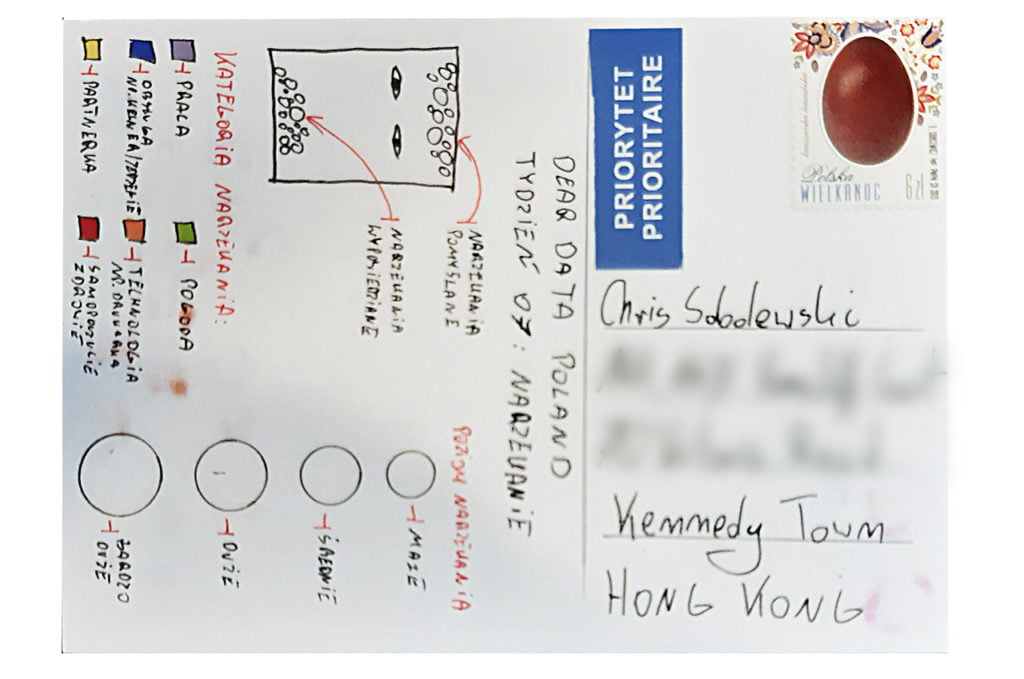 DEAR DATA POLAND
TYDZIEŃ 07: NARZEKANIE
NARZEKANIA
POMYŚLANE
NARZEKANIA
WYPOWIEDZIANE
KATEGORIA NARZEKANIA:
PRACA
POGODA
OBSŁUGA
NP. KELNER/
TECHNOLOGIA
NP. DRUKARKA
PARTNERKA
SAMOPOCZUCIE
ZDROWIE
POZIOM NARZEKANIA
MAŁE
ŚREDNIE
DUŻE
BARDZO
DUŻE
PRIORYTET
PRIORITAIRE
Polska
WIELKANOC 6 ZŁ
Chris Sobolewski
Kennedy Town
HONG KONG